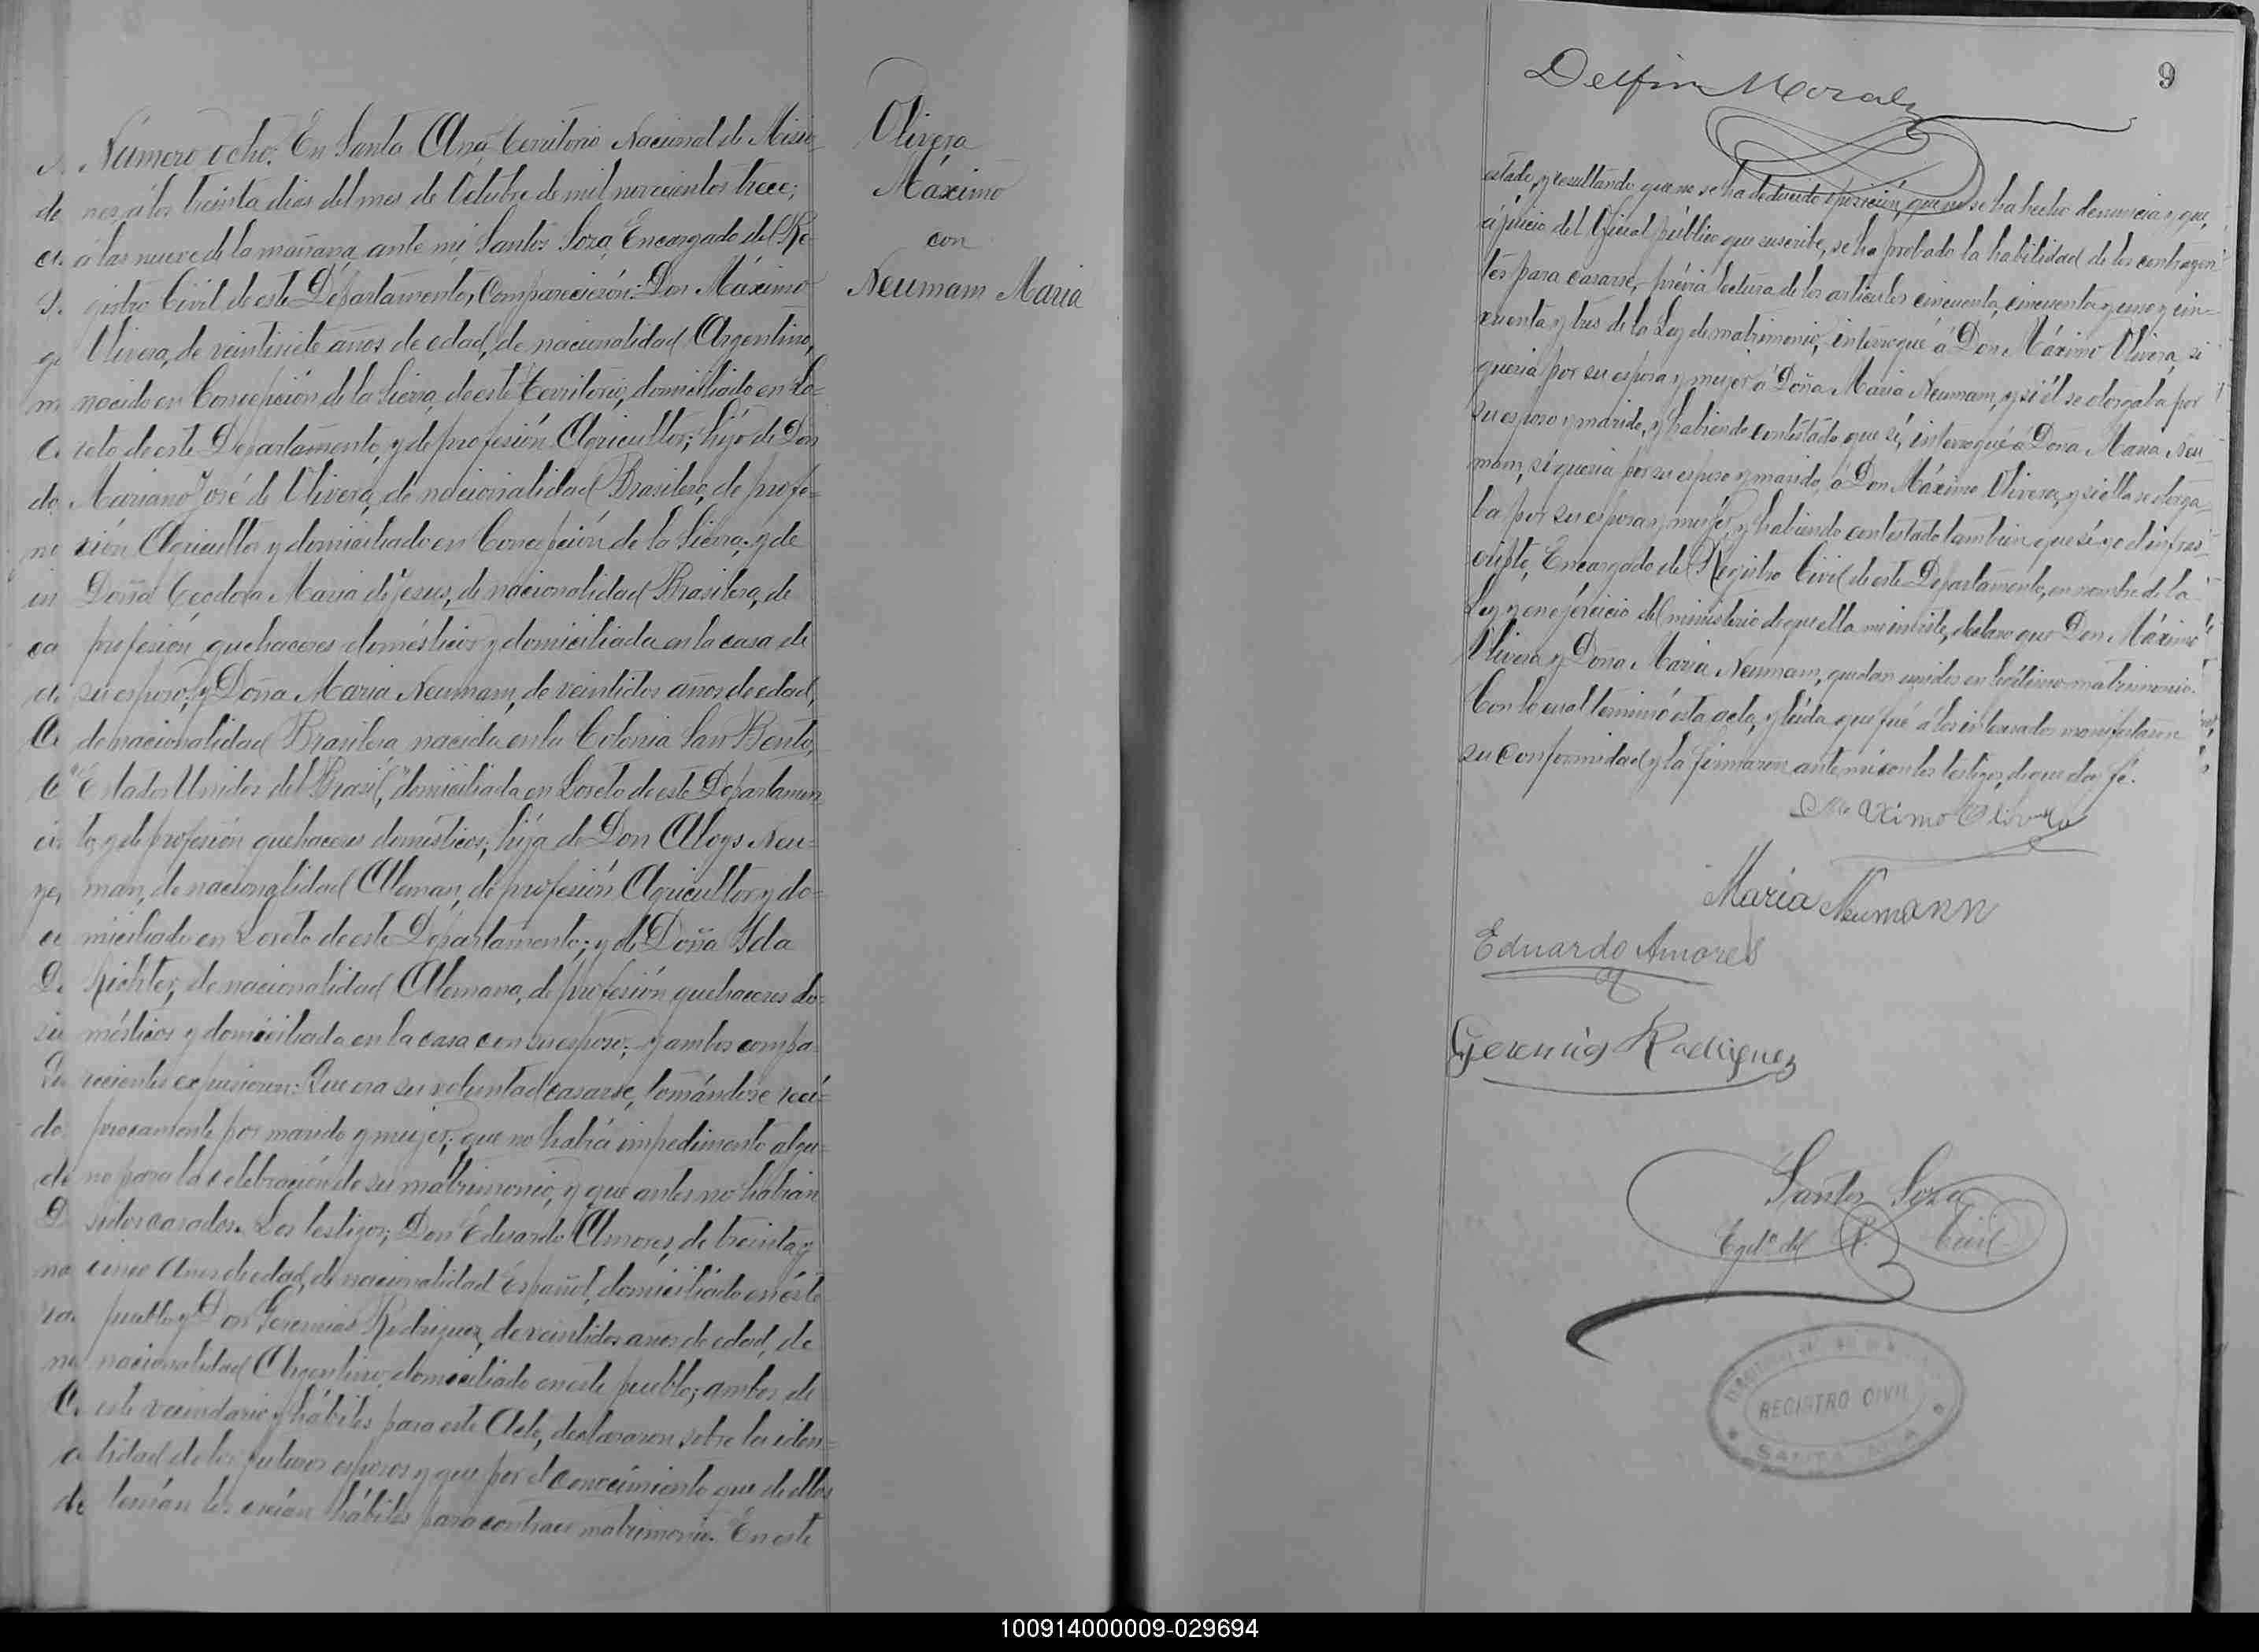 Número ocho. En Santa Ana, Territorio Nacional de Misio-
nes, á los treinta dias del mes de Octubre de mil novecientos trece,
á las nueve de la mañana, ante mi, Santos Soza, Encargado del Re-
gistro Civil de este Departamento, Comparecieron: Don Máximo
Olivera, de veintisiete años de edad, de nacionalidad Argentino,
nacido en Concepción de la Sierra, de este Territorio, domiciliado en Lo-
reto de este Departamento, y de profesión Agricultor; hijo de Don
Mariano José de Olivera, de nacionalidad Brasilero, de profe-
sión Agricultor y domiciliado en Concepción de la Sierra; y de
Doña Teodora Maria de Jesus, de nacionalidad Brasilera, de
profesión quehaceres domésticos y domiciliada en la casa de
su esposo; y Doña Maria Neumam, de veintidos años de edad,
de nacionalidad Brasilera nacida en la Colonia San Bento,
"Estados Unidos del Brasil," domiciliada en Loreto de este Departamen
to, y de profesión quehaceres domésticos; hija de Don Aloys Neu-
man, de nacionalidad Aleman, de profesión Agricultor y do-
miciliado en Loreto de este Departamento; y de Doña Ida
Richter, de nacionalidad Alemana, de profesión quehaceres do-
mésticos y domiciliada en la casa con su esposo; y ambos compa-
recientes expusieron: Que era su voluntad casarse, tomándose recí-
procamente por marido y mujer; que no habia impedimento algu-
no para la celebración de su matrimonio, y que antes no habian
sidos casados. Los testigos; Don Eduardo Amores, de treinta y
cinco Años de edad, de nacionalidad Español, domiciliado en éste
pueblo y Don Geremias Rodriguez, de veintidos años de edad, de
nacionalidad Argentino, domiciliado en este pueblo; ambos de
este vecindario y hábiles para este Acto, declararon sobre la iden-
tidad de los futuros esposos y que por el conocimiento que de ellos
tenian los creían hábiles para contraer matrimonio. En este
Olivera
Máximo
con
Neumam Maria
9
Delfin Morales
estado, y resultando que no se ha deducido oposición, que no se ha hecho denuncia y que,
á juicio del Oficial público que suscribe, se ha probado la habilidad de los contrayen-
tes para casarse, prévia lectura de los articulos cincuenta, cincuenta y uno y cin-
cuenta y tres de la Ley de matrimonio, interrogué á Don Máximo Olivera, si
queria por su esposa y mujer á Doña Maria Neumam, y si él se otorgaba por
su esposo y marido, y habiendo contestado que sí, interrogué á Doña Maria Neu-
mam, si queria por su esposo y marido, á Don Máximo Olivera, y si ella se otorga-
ba por su esposa y mujer, y habiendo contestado tambien que sí, yo el infras-
cripto, Encargado del Registro Civil de este Departamento, en nombre de la
Ley y en ejercicio del ministerio de que ella me inviste, declaro que Don Máximo
Olivera y Doña Maria Neumam, quedan unidos en legítimo matrimonio.
Con lo cual terminó esta acta, y leida que fué á los interesados manifestaron
su conformidad y la firmaron ante mi con los testigos, de que doy fé.
Maximo Olivera
Maria Neumann
Eduardo Amores
Geremias Rodriguez
Santos Soza
Egdo del R. Civil
REGISTRO CIVIL
SANTA ANA
100914000009-029694